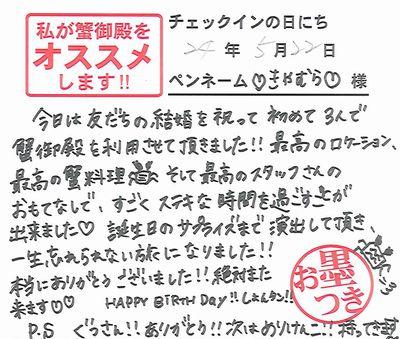 私が蟹御殿を
オススメ
します!!
チェックインの日にち
24年 5月22日
ペンネーム♡きむら♡ 様
今日は友だちの結婚を祝って初めて3人で
蟹御殿を利用させて頂きました!!最高のロケーション、
最高の蟹料理 そして最高のスタッフさんの
おもてなしで、すごくステキな時間を過ごすことが
出来ました♡ 誕生日のサプライズまで演出して頂き、
一生忘れられない旅になりました!!
本当にありがとうございました!!絶対また
来ます♡♡ HAPPY BIRTH DAY!! しょんタン!!
お墨つき
P.S ぐっさん!!ありがとう!!次はありけんこ!!持ってきま